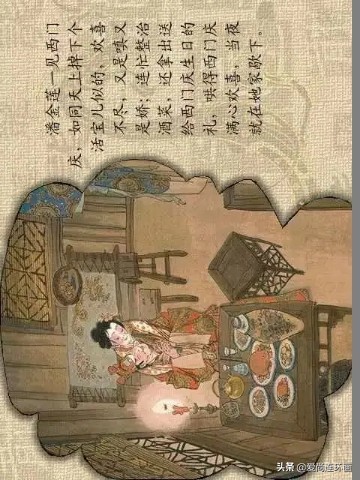 潘金莲一见西门
庆，如同天上掉下个
活宝儿似的，欢喜
不尽，又是嗔又
是娇；连忙整治
酒菜，还拿出送
给西门庆生日的
礼，哄得西门庆
满心欢喜，当夜
就在她家歇下。
头条 @爱尚连环画